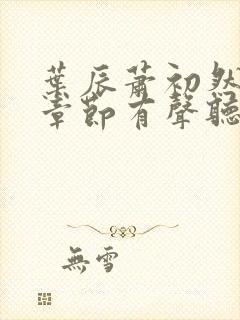 葉辰蕭初然
章節有聲聽
無雪